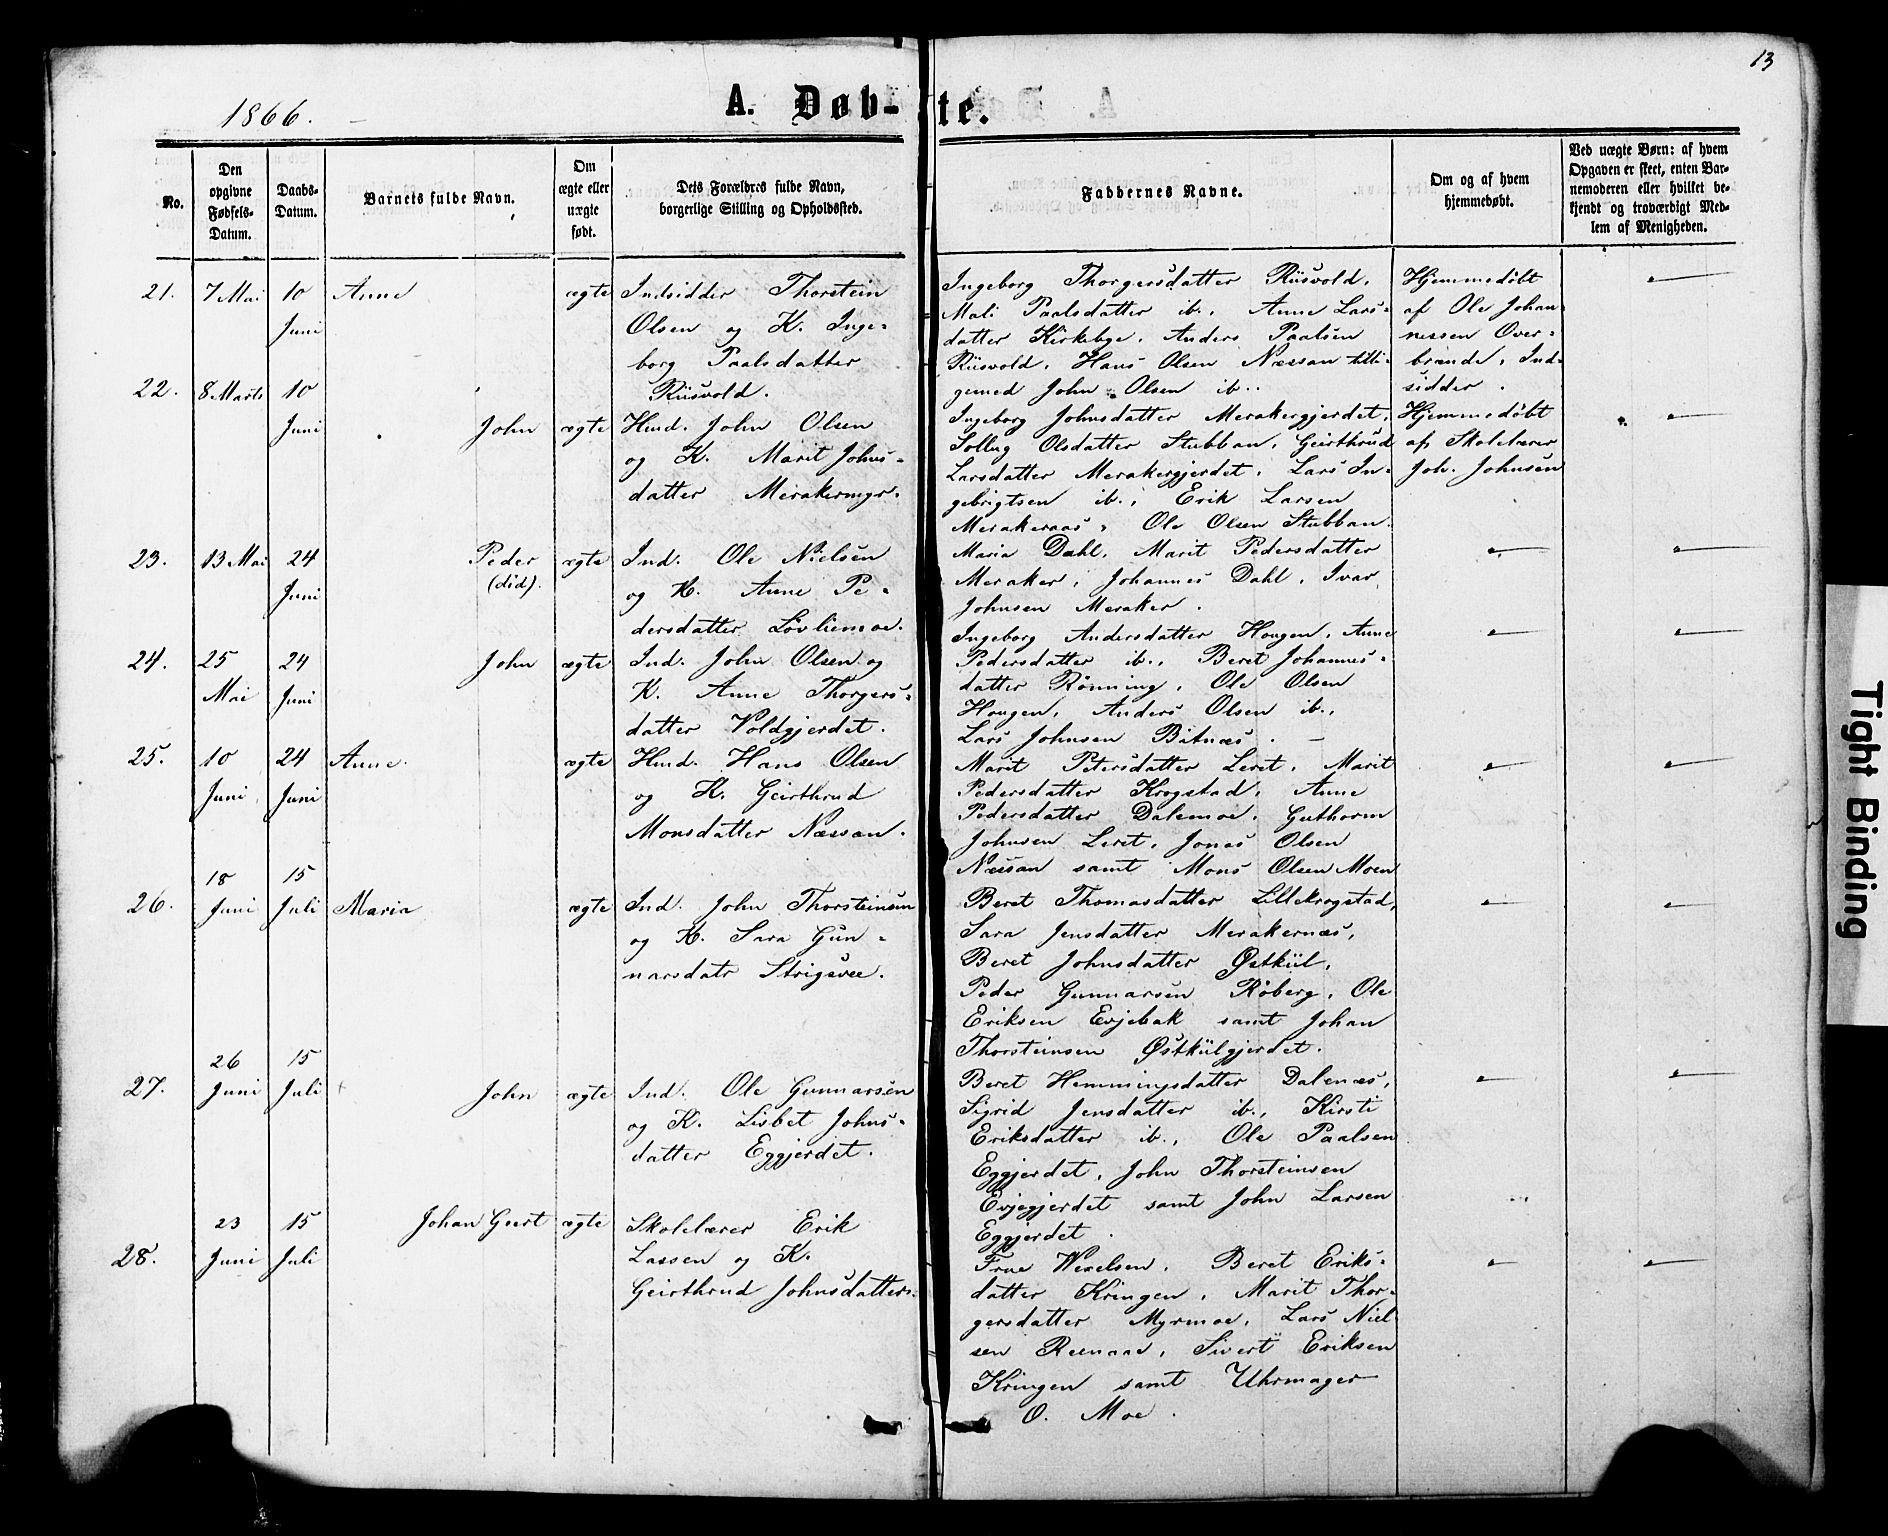 13
1866.
A. Døb-te.
No.
Den opgivne Fødsels-Datum.
Daabs-Datum.
Barnets fulde Navn.
Om ægte eller uægte født.
Dets Forældres fulde Navn, borgerlige Stilling og Opholdssted.
Faddernes Navne.
Om og af hvem hjemmedøbt.
Ved uægte Børn: af hvem Opgaven er skeet, enten Barnemoderen eller hvilket bekjendt og troværdigt Medlem af Menigheden.
21. 7 Mai 10 Juni Anne ægte
Indsidder Thorstein
Olsen og K. Inge-
borg Paalsdatter
Riisvold.
Ingeborg Thorgersdatter Riisvold,
Mali Paalsdatter ib., Anne Lars-
datter Kirkebye, Anders Paalsen
Riisvold, Hans Olsen Næssan tilli-
gemed John Olsen ib.
Hjemmedøbt
af Ole Johan-
nessen Over-
brande, Ind-
sidder.
22. 8 Marts 10 Juni John ægte
Hmd. John Olsen
og K. Marit Johns-
datter Merakermyr.
Ingeborg Johnsdatter Merakergjerdet,
Sollug Olsdatter Stubban, Geirthrud
Larsdatter Merakergjerdet, Lars In-
gebrigtsen ib., Erik Larsen
Merakeraas, Ole Olsen Stubban.
Hjemmedøbt
af Skolelærer
Joh. Johnsen
23. 13 Mai 24 Juni Peder (død). ægte
Ind. Ole Nielsen
og K. Anne Pe-
dersdatter Løvliemoe.
Maria Dahl, Marit Pedersdatter
Meraker, Johannes Dahl, Ivar
Johnsen Meraker.
24. 25 Mai 24 Juni John ægte
Ind. John Olsen og
K. Anne Thorgers-
datter Voldgjerdet.
Ingeborg Andersdatter Hougen, Anne
Pedersdatter ib., Beret Johannes-
datter Rønning, Ole Olsen
Hougen, Anders Olsen ib.,
Lars Johnsen Bitnæs. —
25. 10 Juni 24 Juni Anne. ægte
Hmd. Hans Olsen
og K. Geirthrud
Monsdatter Næssan.
Marit Petersdatter Leret, Marit
Pedersdatter Krogstad, Anne
Pedersdatter Dalemoe, Guthorm
Johnsen Leret, Jonas Olsen
Næssan samt Mons Olsen Moen
26. 18 Juni 15 Juli Maria ægte
Ind. John Thorsteinsen
og K. Sara Gun-
narsdatr Strigsvee.
Beret Thomasdatter Lillekrogstad,
Sara Jensdatter Merakernæs,
Beret Johnsdatter Østkiil,
Peder Gunnarsen Røberg, Ole
Eriksen Evjebak samt Johan
Thorsteinsen Østkiilgjerdet.
27. 26 Juni 15 Juli John ægte
Ind. Ole Gunnarsen
og K. Lisbet Johns-
datter Eggjerdet.
Beret Hemmingsdatter Dalenæs,
Sigrid Jensdatter ib., Kirsti
Eriksdatter ib., Ole Paalsen
Eggjerdet, John Thorsteinsen
Evjegjerdet samt John Larsen
Eggjerdet.
28. 23 Juni 15 Juli Johan Geert ægte
Skolelærer Erik
Lassen og K.
Geirthrud Johnsdatter.
Frue Wexelsen, Beret Eriks-
datter Kringen, Marit Thor-
gersdatter Myrmoe, Lars Niel
sen Reenaae, Sivert Eriksen
Kringen samt Uhrmager
O. Moe.
Tight Binding